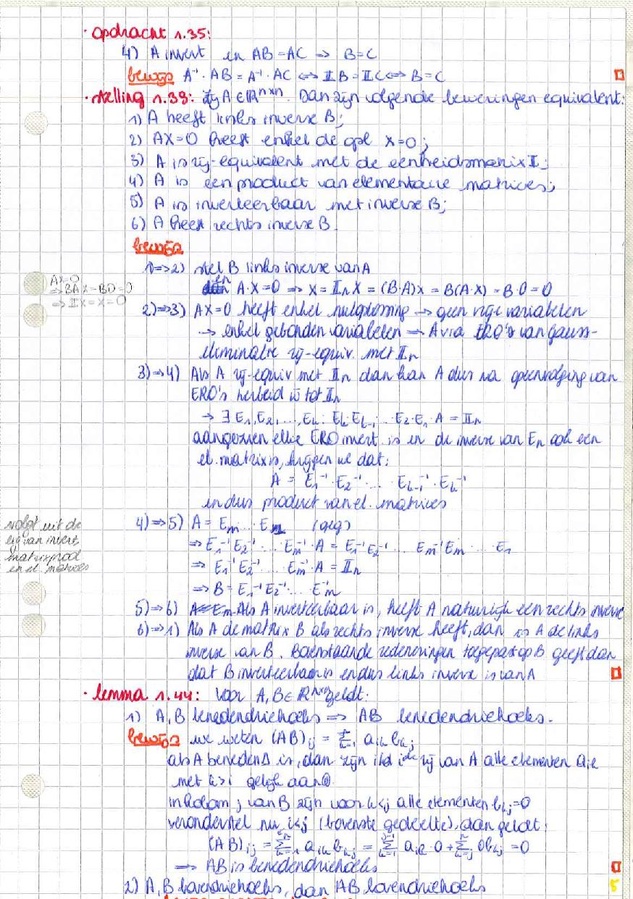 · opdracht 1.35:
4) A invert en AB = AC ⇒ B = C
bewijs A⁻¹·AB = A⁻¹·AC ⇔ 𝕀B = 𝕀C ⇔ B = C
· stelling 1.39: zij A ∈ ℝⁿˣⁿ. Dan zijn volgende beweringen equivalent:
1) A heeft links inverse B;
2) AX = 0 heeft enkel de opl X = 0;
3) A is rij-equivalent met de eenheidsmatrix 𝕀;
4) A is een product van elementaire matrices;
5) A is inverteerbaar met inverse B;
6) A heeft rechts inverse B.
bewijs
1⇒2) stel B links inverse van A
en A·X = 0 ⇒ X = 𝕀ₙX = (B·A)X = B(A·X) = B·0 = 0
AX = 0
⇒ BAX = B0 = 0
⇒ 𝕀X = X = 0
2)⇒3) AX = 0 heeft enkel nuloplossing → geen vrije variabelen
→ enkel gebonden variabelen → A via ERO's van gauss-
eliminatie rij-equiv. met 𝕀ₙ
3)⇒4) Als A rij-equiv met 𝕀ₙ dan kan A dus na opeenvolging van
ERO's herleid tot 𝕀ₙ
→ ∃ E₁, E₂, ..., Eₖ: Eₖ Eₖ₋₁ ... E₂·E₁·A = 𝕀ₙ
aangezien elke ERO invert. is en de inverse van Eₙ ook een
el. matrix is, krijgen we dat:
A = E₁⁻¹·E₂⁻¹· ... ·Eₖ₋₁⁻¹·Eₖ⁻¹
en dus product van el. matrices
volgt uit de
eig van invert
matrixprod
en el. matrices
4)⇒5) A = Eₘ ... E₁ (geg)
⇒ E₁⁻¹E₂⁻¹ ... Eₘ⁻¹·A = E₁⁻¹E₂⁻¹ ... Eₘ⁻¹Eₘ ... E₁
⇒ E₁⁻¹E₂⁻¹ ... Eₘ⁻¹·A = 𝕀ₙ
⇒ B = E₁⁻¹E₂⁻¹ ... Eₘ⁻¹
5)⇒6) Als A inverteerbaar is, heeft A natuurlijk een rechts inverse
6)⇒1) Als A de matrix B als rechts inverse heeft, dan is A de links
inverse van B. Bovenstaande redeneringen toegepast op B geeft dan
dat B inverteerbaar is en dus links inverse is van A
· lemma 1.44: Voor A, B ∈ ℝⁿˣⁿ geldt:
1) A, B benedendriehoeks ⇒ AB benedendriehoeks.
bewijs we weten (AB)ᵢⱼ = Σ aᵢₖ bₖⱼ
als A beneden Δ is, dan zijn in de iᵈᵉ rij van A alle elementen aᵢₖ
met k>i gelijk aan 0
In kolom j van B zijn voor k<j alle elementen bₖⱼ = 0
veronderstel nu i<j (bovenste gedeelte), dan geldt:
(AB)ᵢⱼ = Σ aᵢₖ bₖⱼ = Σ aᵢₖ·0 + Σ 0bₖⱼ = 0
⇒ AB is benedendriehoeks
2) A, B bovendriehoeks, dan AB bovendriehoeks
5